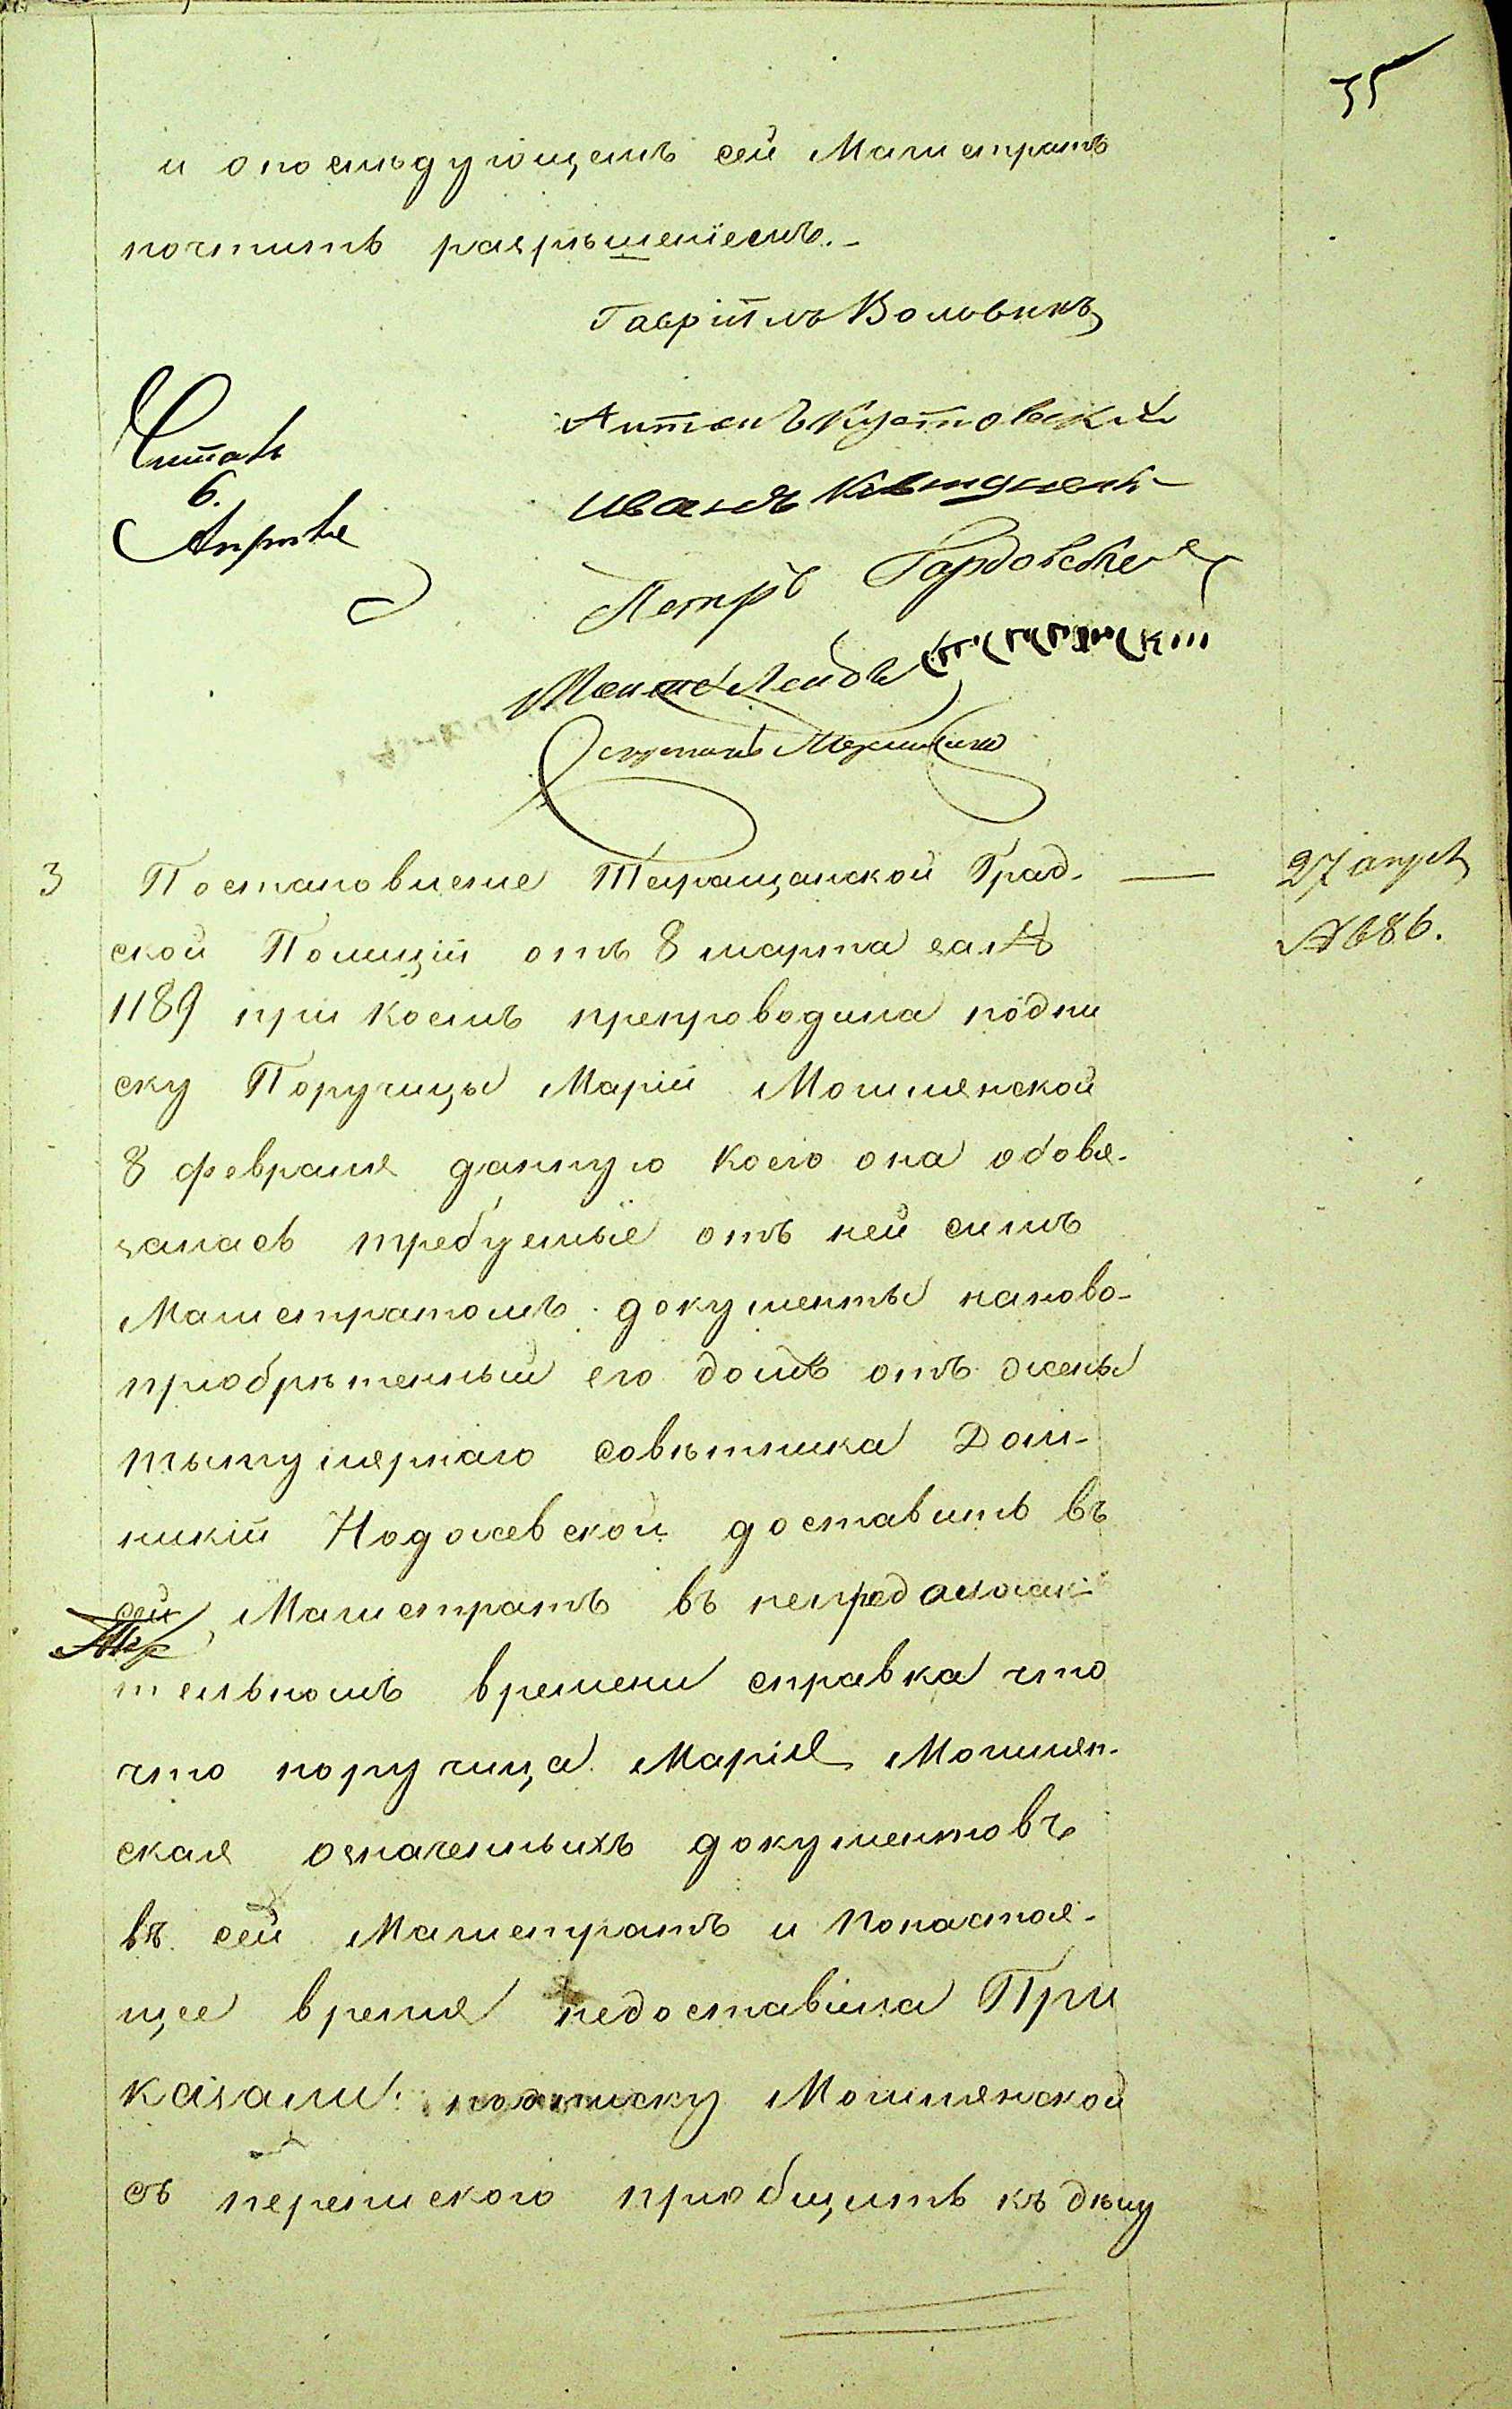 35
и опослѣдующемъ сей Магистратъ
почтитъ разрѣшеніемъ.-
Гавріилъ Воловикъ
Читалъ
6.
Апрѣля
Антонъ Кустовскій
Иванъ
Петръ
3 Постановленіе Таращанской Град- — 27 апрел
ской Полиціи отъ 8 марта за №
№ 686.
1189 при коемъ препроводила подпи
ску Поручицы Маріи Могилянской
8 февраля данную коего она обовя-
залась требуемые отъ ней симъ
Магистратомъ документы наново-
пріобрѣтенный его домъ отъ жены
тытулярнаго совѣтника Дом-
никіи Нодолсевской доставить въ
сей Магистратъ въ непродолжи-
тельномъ времени справка что
что поручица Марія Могилян-
ская означенныхъ документовъ
въ сей Магистратъ и понастоя-
щее время недоставила При
казали: подписку Могилянской
съ перепискою пріобщить къ дѣлу